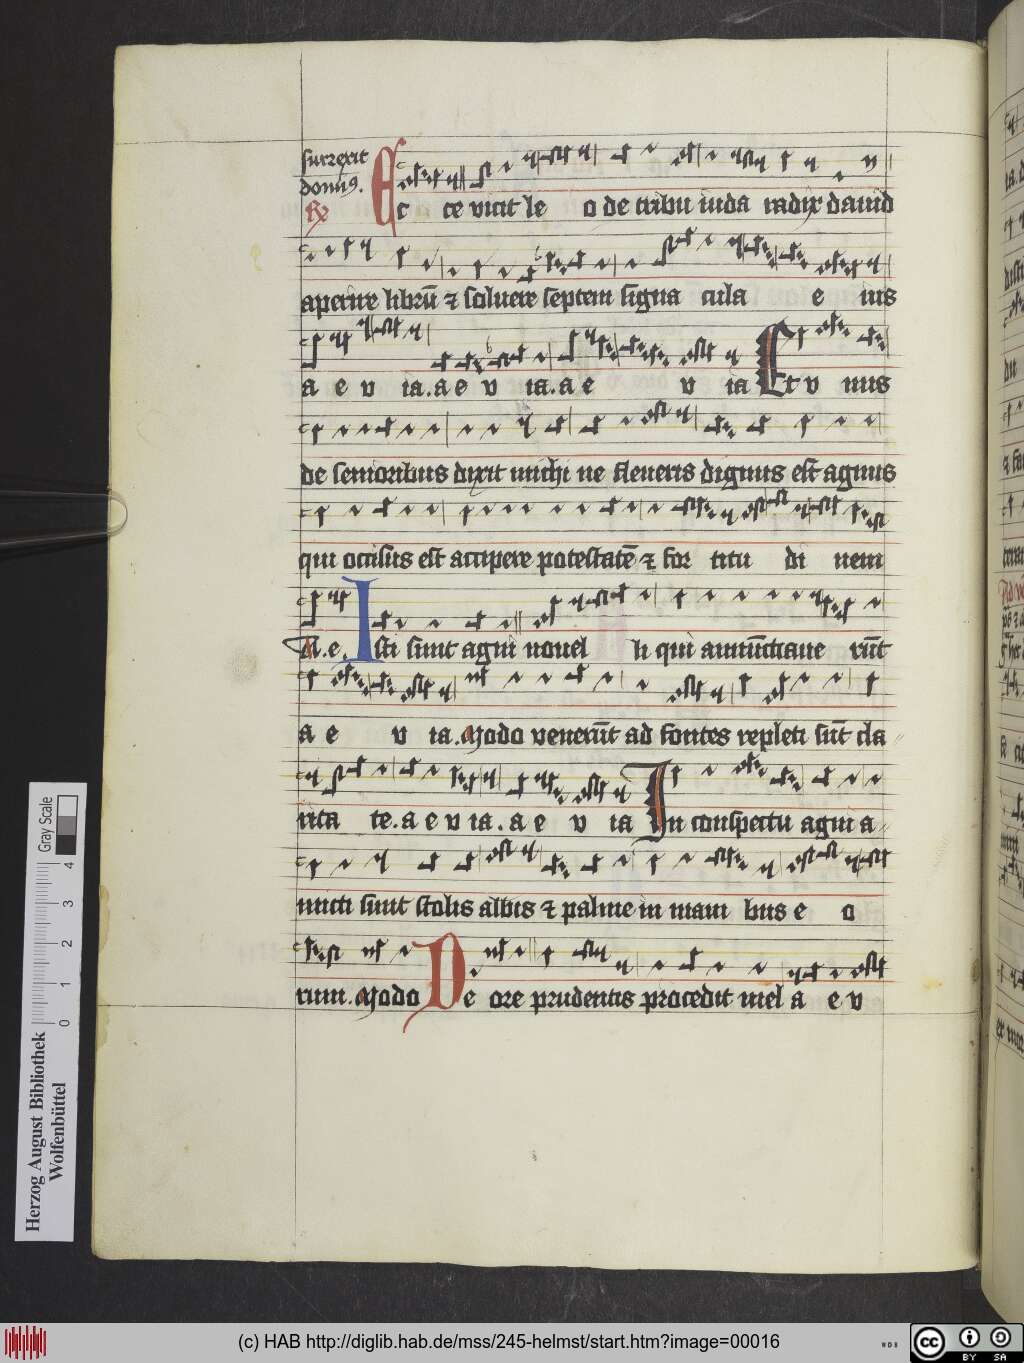 surrexit
domin9.
Rx
Ec ce vicit le o de tribu iuda radix dauid
aperire librū ⁊ soluere septem signa cula e ius
a e v ia. a e v ia. a e v ia Et v nus
de senioribus dixit michi ne fleueris dignus est agnus
qui occisus est accipere potestatē ⁊ for titu di nem
A. e. Isti sunt agni nouel li qui annūtiaue rūt
a e v ia. Modo venerūt ad fontes repleti sūt cla
rita te. a e v ia. a e v ia In conspectu agni a
micti sunt stolis albis ⁊ palme in mani bus e o
rum. Modo De ore prudentis procedit mel a e v
Herzog August Bibliothek
Wolfenbüttel
Gray Scale
0 1 2 3 4
(c) HAB http://diglib.hab.de/mss/245-helmst/start.htm?image=00016
WDB
cc BY SA